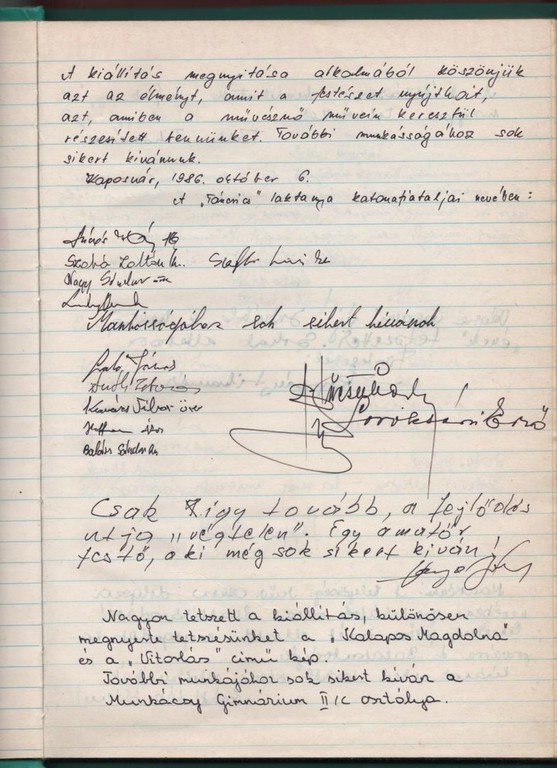 A kiállítás megnyitása alkalmából köszönjük
azt az élményt, amit a festészet nyújthat,
azt, amiben a művésznő művein keresztül
részesített bennünket. További munkásságához sok
sikert kívánunk.
Kaposvár, 1986. október 6.
A „Táncsics" laktanya katonafiataljai nevében:
Szabó Zoltán
Nagy Sándor
Munkásságához sok sikert kívánok
János
Kovács Tibor őrv
Balázs Sándor
Csak így tovább, a fejlődés
útja „végtelen". Egy amatőr
festő, aki még sok sikert kíván!
Nagyon tetszett a kiállítás, különösen
megnyerte tetszésünket a „Kalapos Magdolna"
és a „Vitorlás" című kép.
További munkájához sok sikert kíván a
Munkácsy Gimnázium II/c osztálya.